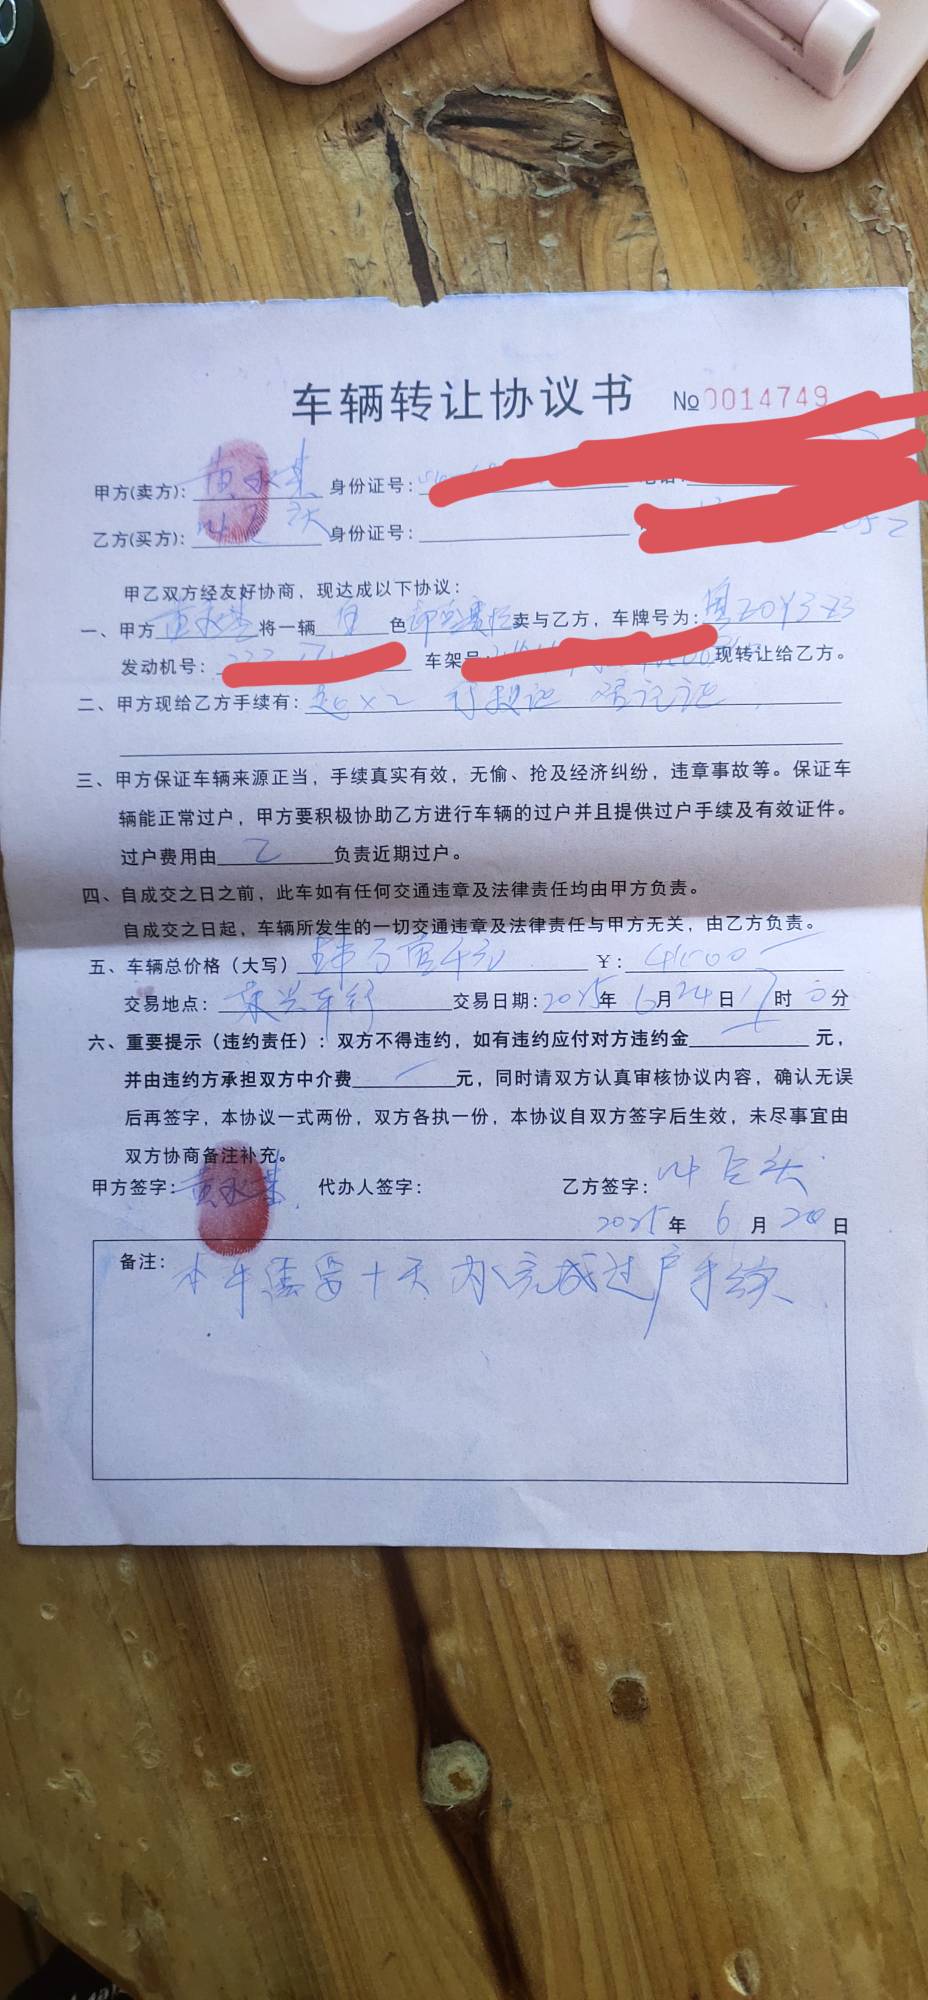 车辆转让协议书 №0014749
甲方(卖方): 黄永基 身份证号:
乙方(买方): 叶 身份证号:
甲乙双方经友好协商，现达成以下协议：
一、甲方 黄永基 将一辆 白 色 卖与乙方，车牌号为: 粤
发动机号: 车架号: 现转让给乙方。
二、甲方现给乙方手续有: x2 行驶证 登记证
三、甲方保证车辆来源正当，手续真实有效，无偷、抢及经济纠纷，违章事故等。保证车
辆能正常过户，甲方要积极协助乙方进行车辆的过户并且提供过户手续及有效证件。
过户费用由 乙 负责近期过户。
四、自成交之日之前，此车如有任何交通违章及法律责任均由甲方负责。
自成交之日起，车辆所发生的一切交通违章及法律责任与甲方无关，由乙方负责。
五、车辆总价格（大写） ￥:
交易地点: 车行 交易日期: 2025年 6月24日17时 分
六、重要提示（违约责任）: 双方不得违约，如有违约应付对方违约金 元，
并由违约方承担双方中介费 元，同时请双方认真审核协议内容，确认无误
后再签字，本协议一式两份，双方各执一份，本协议自双方签字后生效，未尽事宜由
双方协商备注补充。
甲方签字: 黄永基 代办人签字: 乙方签字: 叶
2025年 6 月 日
备注: 本车 十天办完成过户手续